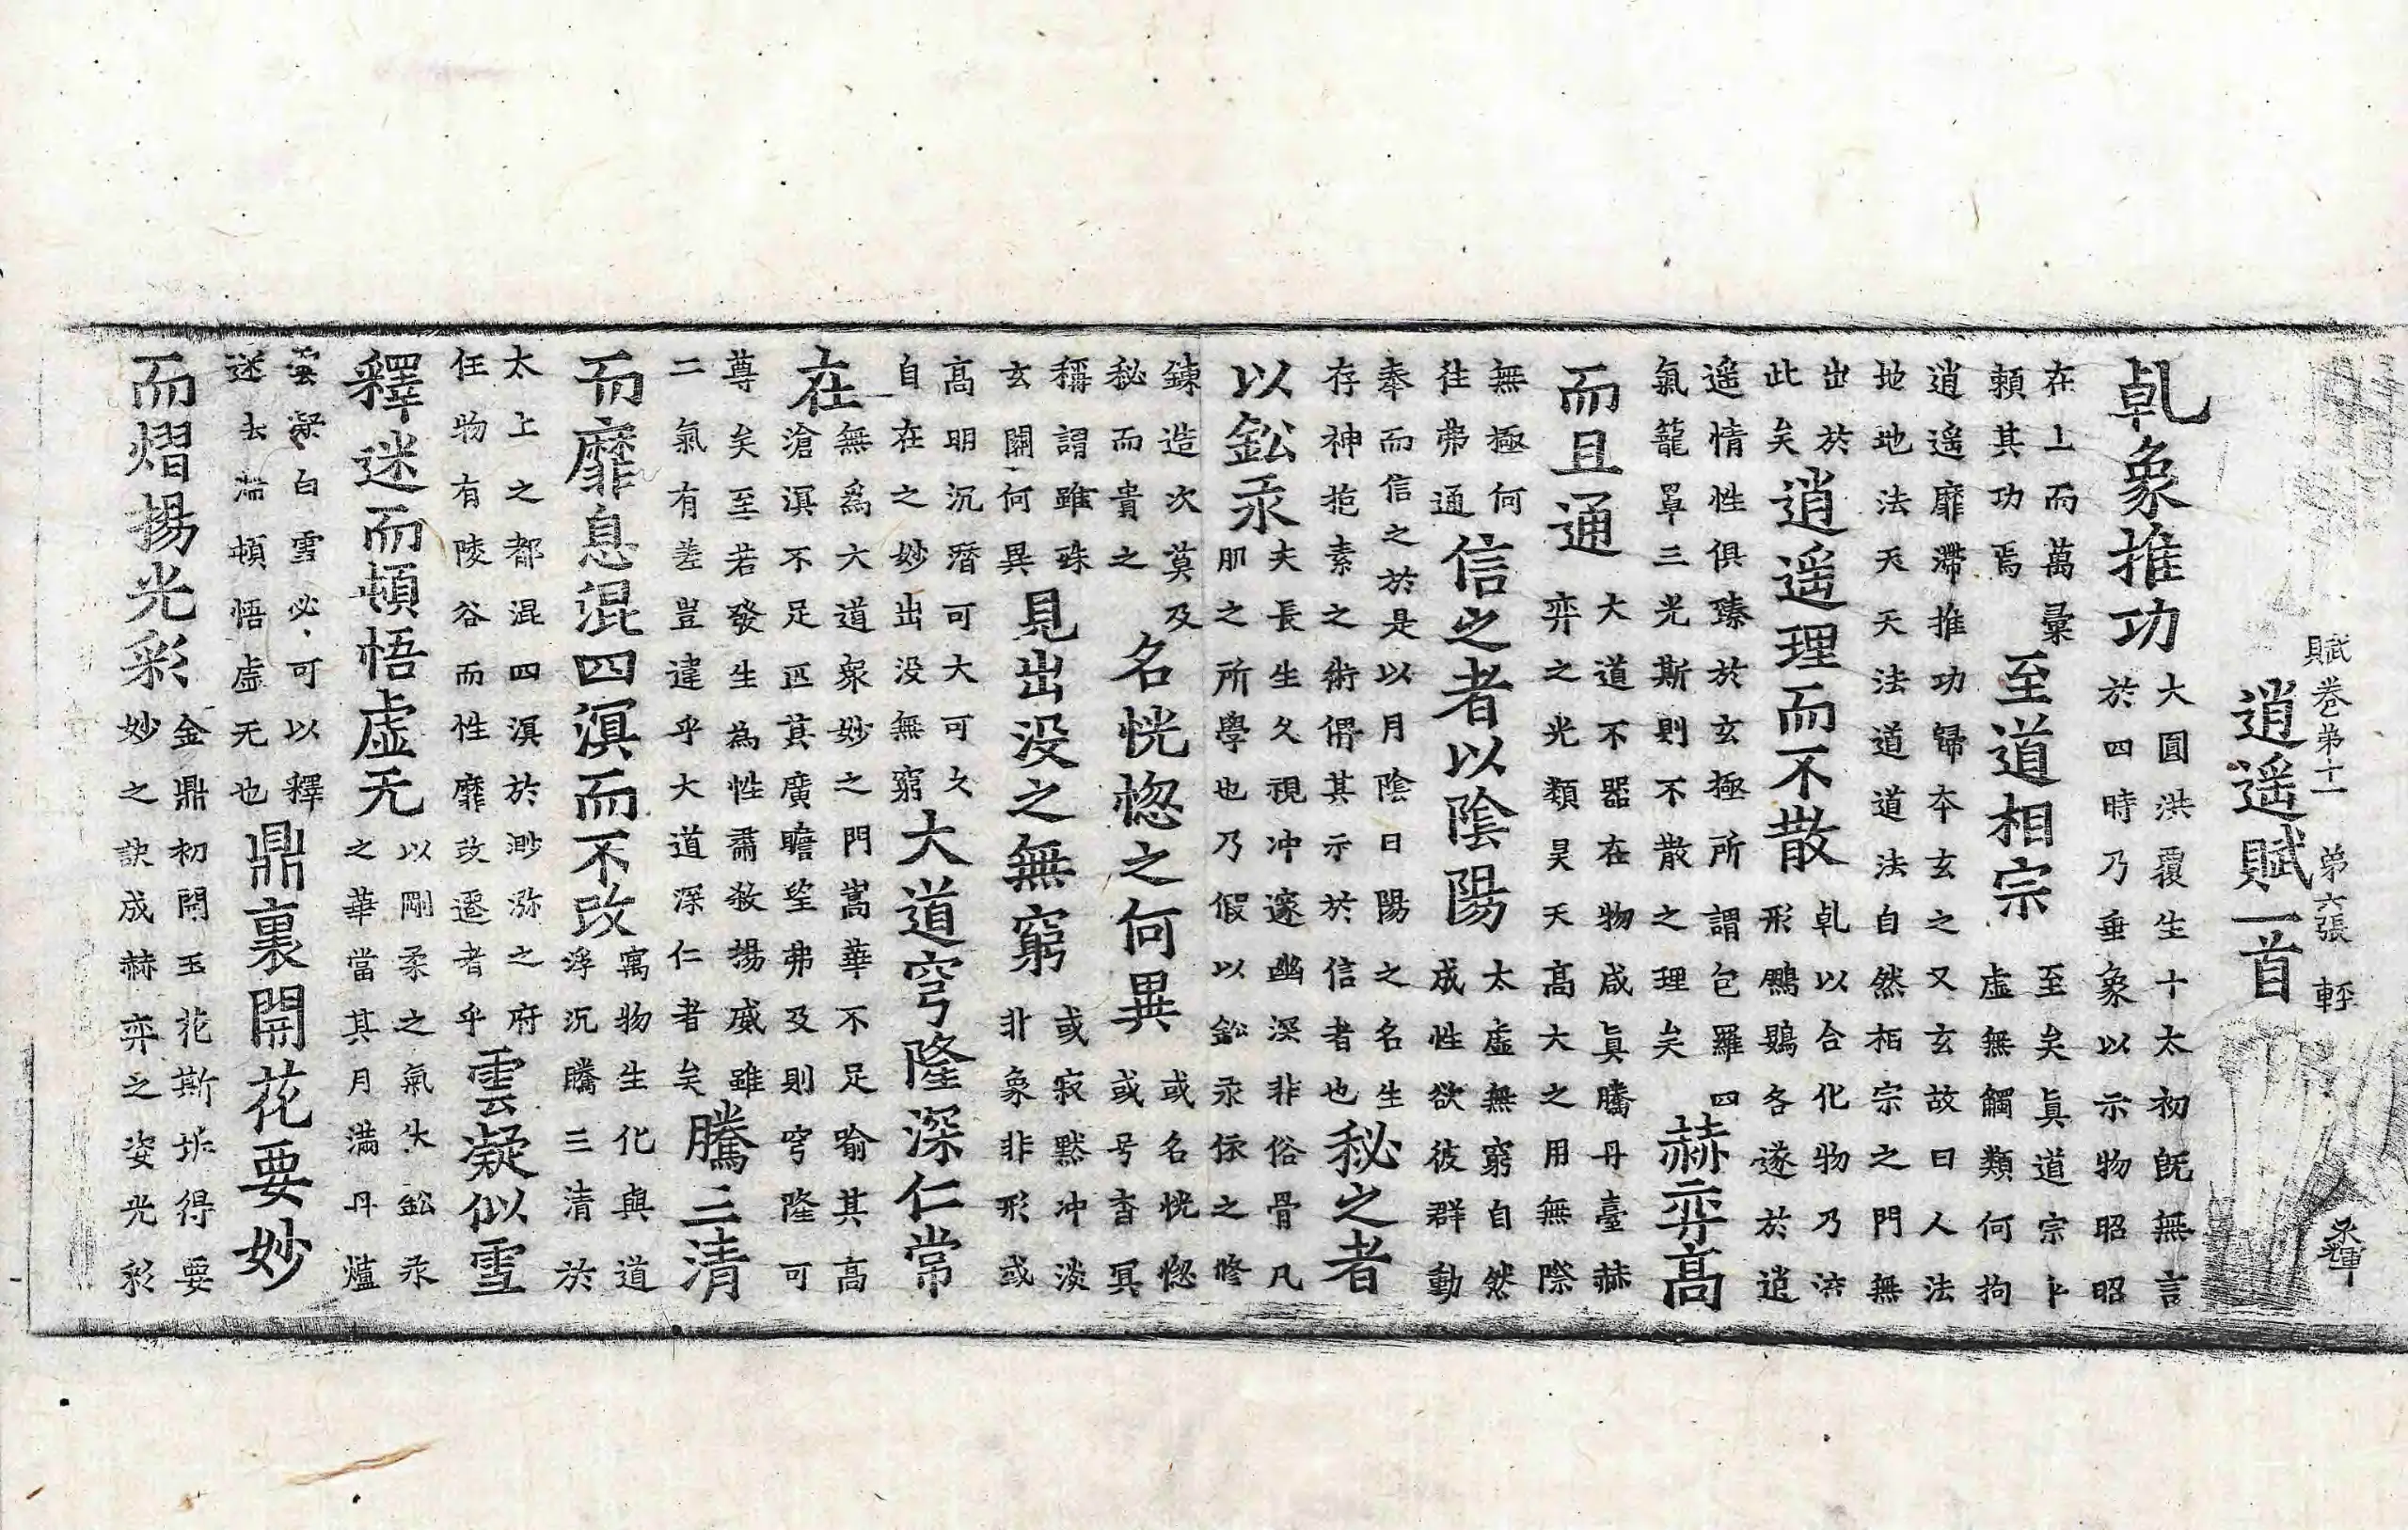 賦卷第十一 第六張 輊
逍遥賦一首
乹象推功
大圓洪覆生十太初旣無言
於四時乃垂象以示物昭昭
在上而萬彙
賴其功焉
至道相宗
至矣眞道宗卜
虛無觸類何拘
逍遥靡滯推功歸本玄之又玄故曰人法
地地法天天法道道法自然栢宗之門無
出於
此矣
逍遥理而不散
乹以合化物乃流
形鵬鷃各遂於逍
遥情性俱臻於玄極所謂包羅四
氣籠罩三光斯則不散之理矣
赫弈高
而且通
大道不器在物咸眞騰丹臺赫
弈之光類昊天高大之用無際
無極何
往弗通
信之者以陰陽
太虛無窮自然
成性欲彼群動
奉而信之於是以月陰日陽之名生
存神抱素之術俻其示於信者也
秘之者
以鈆汞
夫長生久視冲邃幽深非俗骨凡
肌之所學也乃假以鈆汞依之修
鍊造次莫及
秘而貴之
名恍惚之何異
或名恍惚
或号杳冥
稱謂雖殊
玄關何異
見出没之無窮
或寂黙冲淡
非象非形或
高明沉潛可大可久
自在之妙出没無窮
大道穹隆深仁常
在
無爲大道衆妙之門嵩華不足喻其高
滄溟不足匹其廣瞻望弗及則穹隆可
尊矣至若發生為性肅殺揚威雖
二氣有差豈違乎大道深仁者矣
騰三清
而靡息混四溟而不改
寓物生化與道
浮沉騰三清於
太上之都混四溟於渺瀰之府
任物有陵谷而性靡改遷者乎
雲凝似雪
釋迷而頓悟虛无
以剛柔之氣火鈆汞
之華當其月滿丹爐
雲凝白雪必可以釋
迷去滯頓悟虛无也
鼎裏開花要妙
而熠揚光彩
金鼎初開玉花斯坼得要
妙之訣成赫弈之姿光彩